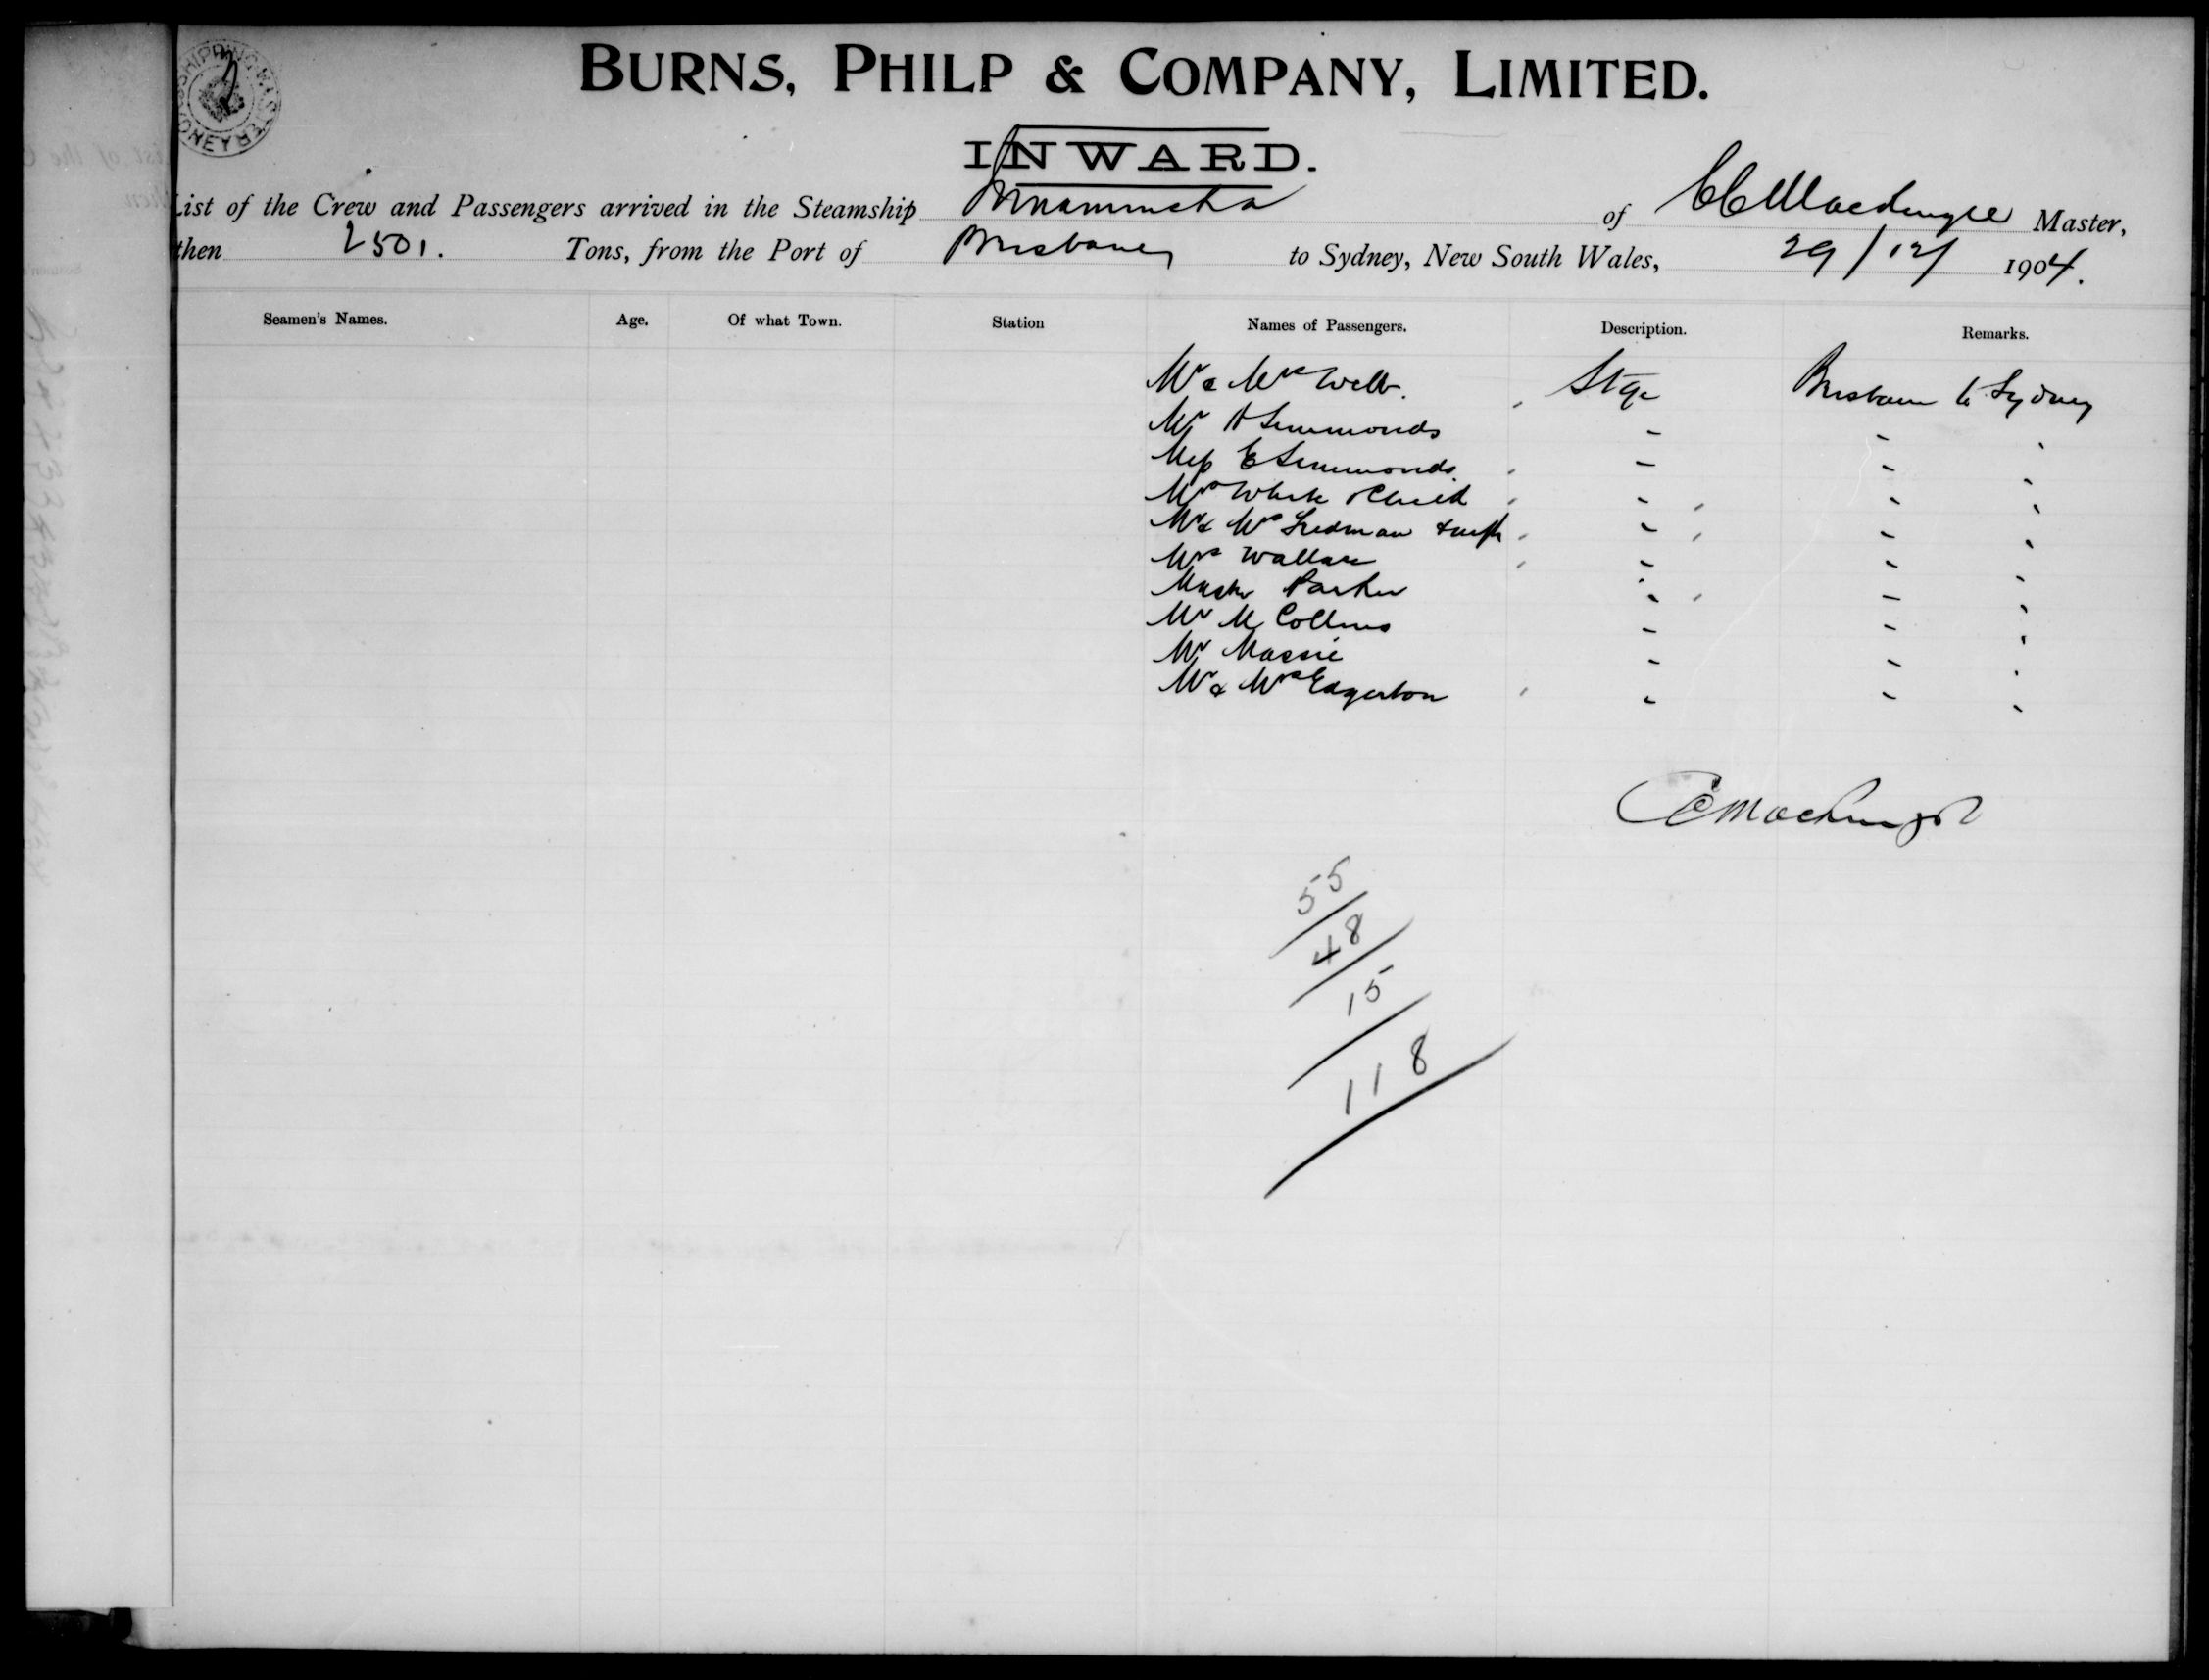 BURNS, PHILP & COMPANY, LIMITED.
INWARD.
List of the Crew and Passengers arrived in the Steamship Innamincka of Master,
then 2501. Tons, from the Port of Brisbane to Sydney, New South Wales, 29/12/ 1904.
Seamen's Names. Age. Of what Town. Station Names of Passengers. Description. Remarks.
Mr & Mrs Webb. Stge Brisbane to Sydney
Mr A Simmonds " " "
Miss E Simmonds. " " "
Mrs White & Child " " "
Mr & Mrs Fredman & " " "
Mrs Wallace " " "
Master Parker " " "
Mr M Collins " " "
Mr Massie " " "
Mr & Mrs Edgerton " " "
55
48
15
118